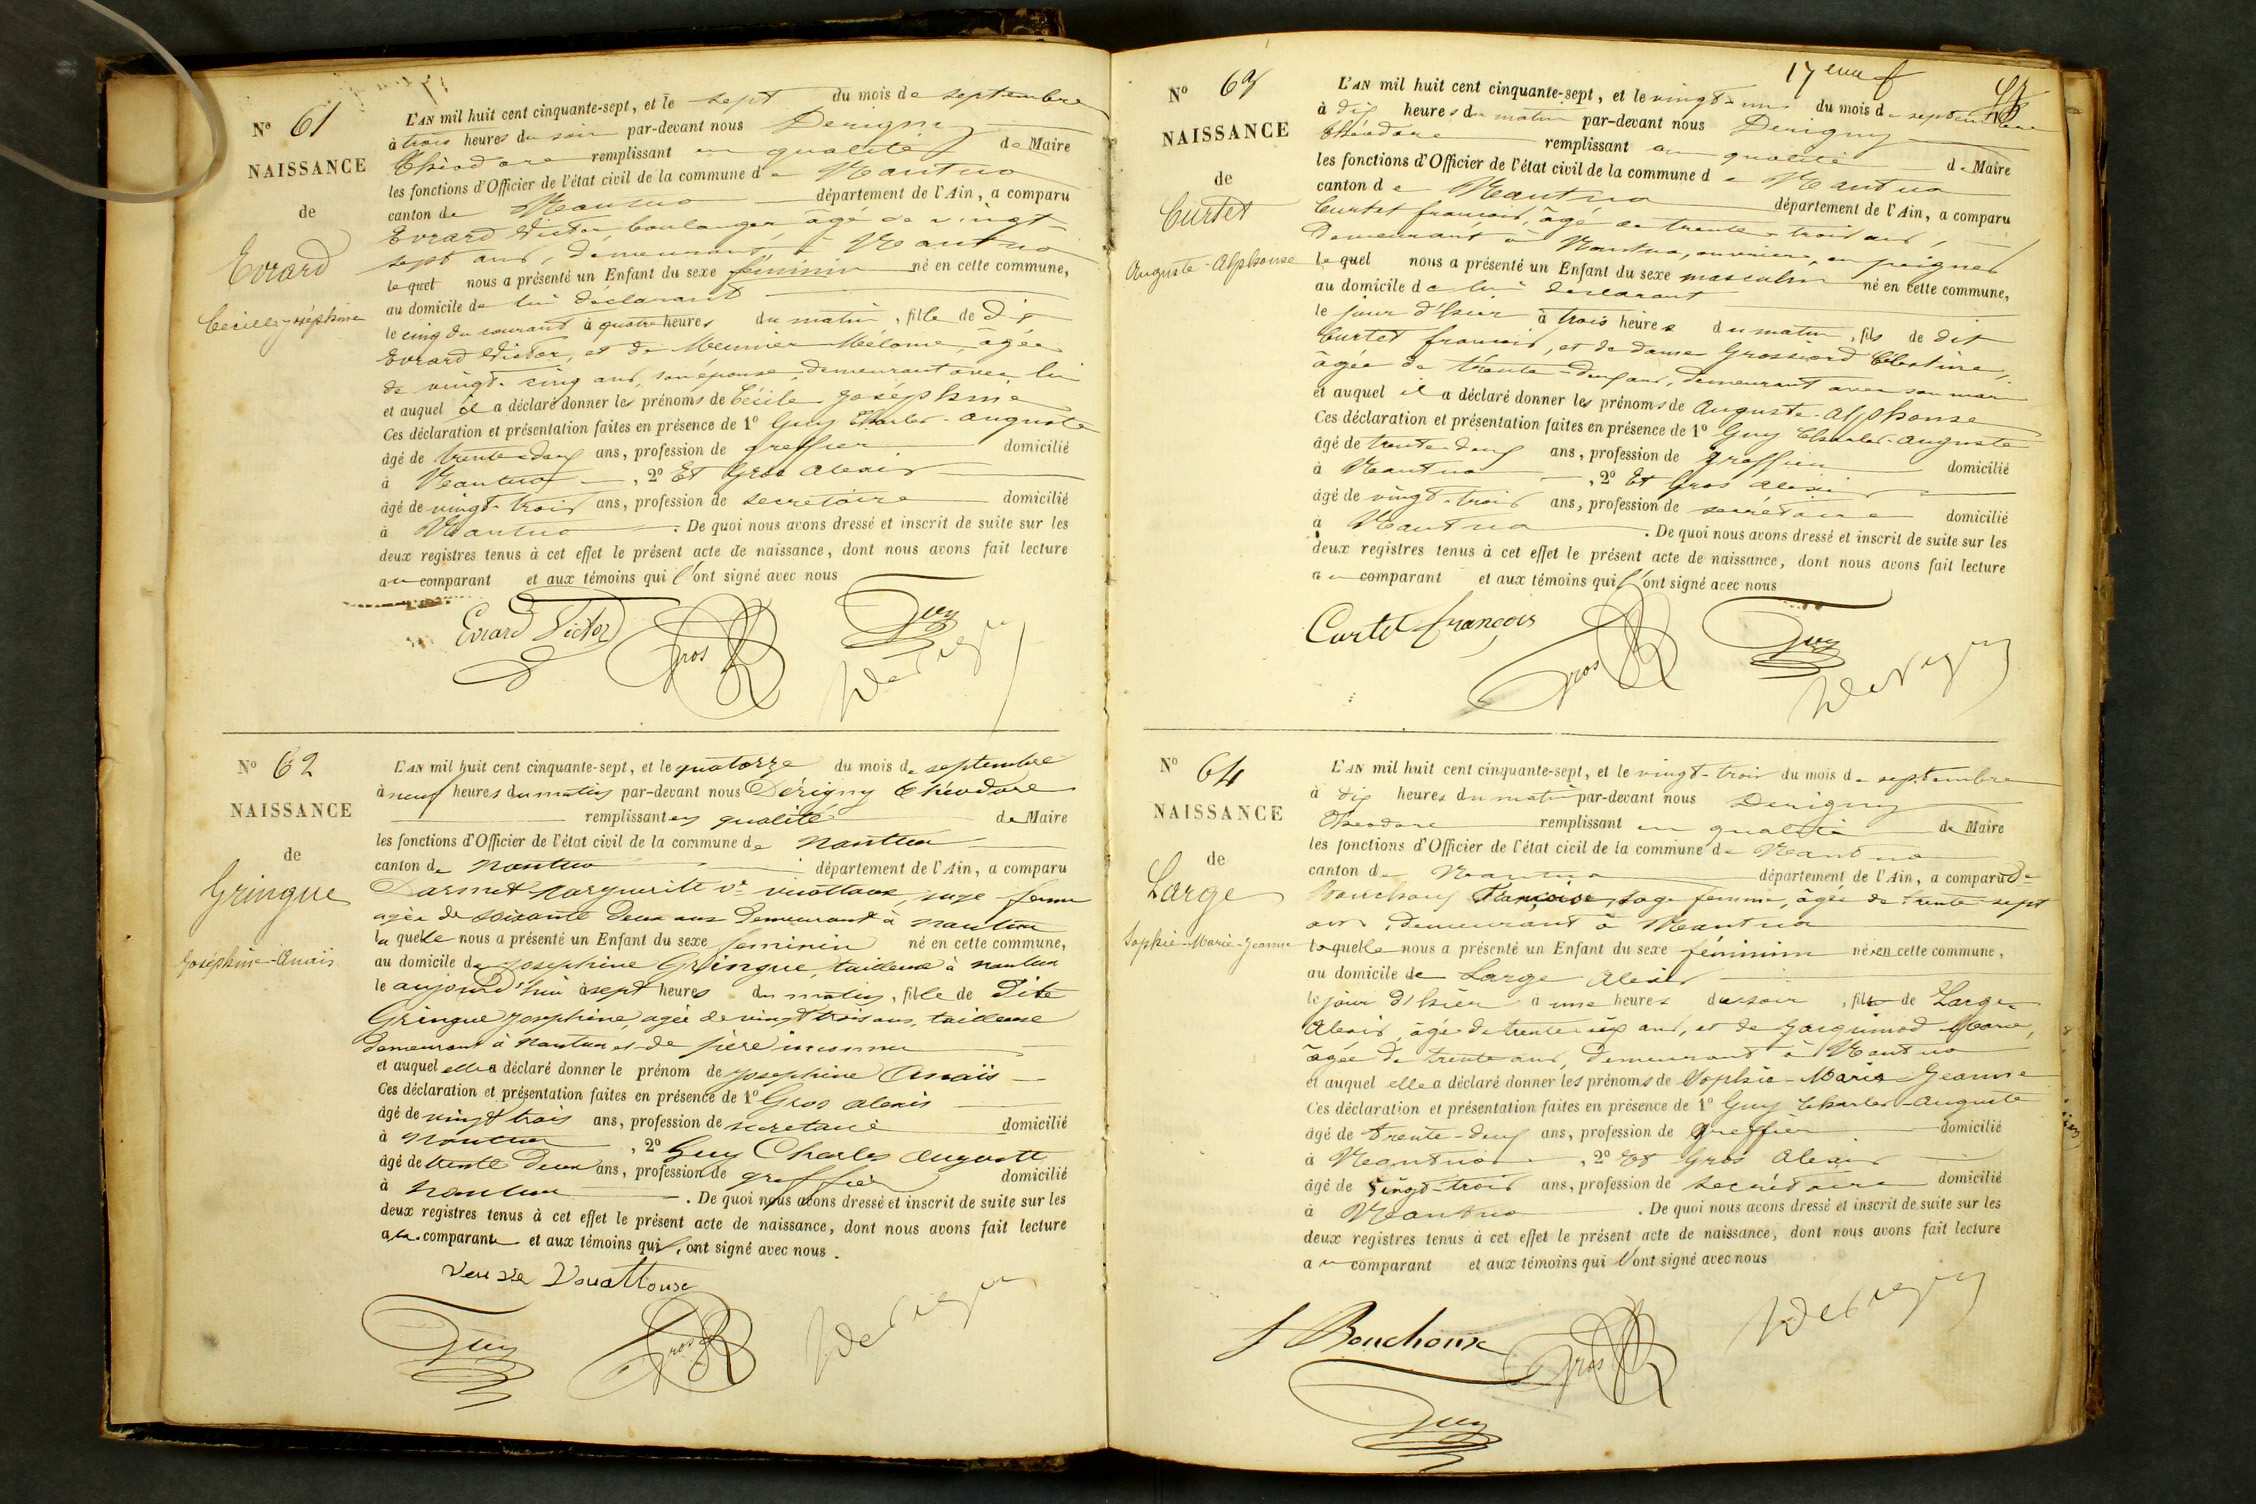 No 61
NAISSANCE
de
Evrard
Cécile-Joséphine
L'AN mil huit cent cinquante-sept, et le sept du mois de septembre
à trois heures du soir par-devant nous Derigny
Théodore remplissant en qualité de Maire
les fonctions d'Officier de l'état civil de la commune de Nantua
canton de Nantua département de l'Ain, a comparu
Evrard Victor boulanger, âgé de vingt-
sept ans, demeurant à Nantua
lequel nous a présenté un Enfant du sexe féminin né en cette commune,
au domicile de lui déclarant
le cinq du courant à quatre heures du matin, fille de dit
Evrard Victor, et de Meunier Mélanie, âgée
de vingt-cinq ans, son épouse, demeurant avec lui
et auquel il a déclaré donner les prénoms de Cécile Joséphine
Ces déclaration et présentation faites en présence de 1o Guy Charles-auguste
âgé de trente-deux ans, profession de greffier domicilié
à Nantua, 2o Et Gros alexis
âgé de vingt-trois ans, profession de secrétaire domicilié
à Nantua. De quoi nous avons dressé et inscrit de suite sur les
deux registres tenus à cet effet le présent acte de naissance, dont nous avons fait lecture
au comparant et aux témoins qui l'ont signé avec nous
Evrard Victor Gros Guy
Derigny
No 62
NAISSANCE
de
Gringue
Joséphine-Anaïs
L'AN mil huit cent cinquante-sept, et le quatorze du mois de septembre
à neuf heures du matin par-devant nous Dérigny théodore
remplissant en qualité de Maire
les fonctions d'Officier de l'état civil de la commune de nantua
canton de nantua département de l'Ain, a comparu
Darmet Marguerite ve vuattoux, sage femme
agée de soixante deux ans demeurant à nantua
laquelle nous a présenté un Enfant du sexe feminin né en cette commune,
au domicile de josephine Gringue, tailleuse à nantua
le aujourd'hui à sept heures du matin, fille de dite
Gringue josephine, agée de vingt trois ans, tailleuse
demeurant à nantua et de père inconnu
et auquel elle a déclaré donner le prénom de josephine Anaïs
Ces déclaration et présentation faites en présence de 1o Gros alexis
âgé de vingt trois ans, profession de secretaire domicilié
à nantua, 2o Guy Charles auguste
âgé de trente deux ans, profession de greffier domicilié
à nantua. De quoi nous avons dressé et inscrit de suite sur les
deux registres tenus à cet effet le présent acte de naissance, dont nous avons fait lecture
a la comparante et aux témoins qui l'ont signé avec nous.
veuve Vouattoux
Guy Gros Derigny
17eme f
No 63
NAISSANCE
de
Curtet
Auguste-Alphonse
L'AN mil huit cent cinquante-sept, et le vingt-un du mois de septembre
à dix heures du matin par-devant nous Derigny
théodore remplissant en qualité de Maire
les fonctions d'Officier de l'état civil de la commune de Nantua
canton de Nantua département de l'Ain, a comparu
Curtet francois, âgé de trente-trois ans,
demeurant à Nantua, ouvrier en peignes
lequel nous a présenté un Enfant du sexe masculin né en cette commune,
au domicile de lui declarant
le jour d'hier à trois heures du matin, fils de dit
Curtet francois, et de dame Grossiord Célestine,
âgée de trente-deux ans, demeurant avec son mari
et auquel il a déclaré donner les prénoms de Auguste-Alphonse
Ces déclaration et présentation faites en présence de 1o Guy Charles-auguste
âgé de trente-deux ans, profession de greffier domicilié
à Nantua, 2o Et Gros alexis
âgé de vingt-trois ans, profession de secrétaire domicilié
à Nantua. De quoi nous avons dressé et inscrit de suite sur les
deux registres tenus à cet effet le présent acte de naissance, dont nous avons fait lecture
au comparant et aux témoins qui l'ont signé avec nous
Curtet françois Gros Guy Derigny
No 64
NAISSANCE
de
Large
Sophie-Marie-Jeanne
L'AN mil huit cent cinquante-sept, et le vingt-trois du mois de septembre
à dix heures du matin par-devant nous Derigny
Théodore remplissant en qualité de Maire
les fonctions d'Officier de l'état civil de la commune de Nantua
canton de Nantua département de l'Ain, a comparu De
Bouchoux Françoise, sage femme, âgée de trente-sept
ans, demeurant à Nantua
laquelle nous a présenté un Enfant du sexe féminin né en cette commune,
au domicile de Large alexis
le jour d'hier a une heures du soir, fille de Large
Alexis, âgé de trente six ans, et de Jacquinod Marie,
âgée de trente ans, demeurant à Nantua
et auquel elle a déclaré donner les prénoms de Sophie-Marie-Jeanne
Ces déclaration et présentation faites en présence de 1o Guy Charles-auguste
âgé de trente-deux ans, profession de Greffier domicilié
à Nantua, 2o Et Gros Alexis
âgé de vingt-trois ans, profession de secrétaire domicilié
à Nantua. De quoi nous avons dressé et inscrit de suite sur les
deux registres tenus à cet effet le présent acte de naissance, dont nous avons fait lecture
au comparant et aux témoins qui l'ont signé avec nous
f Bouchoux Gros Derigny
Guy